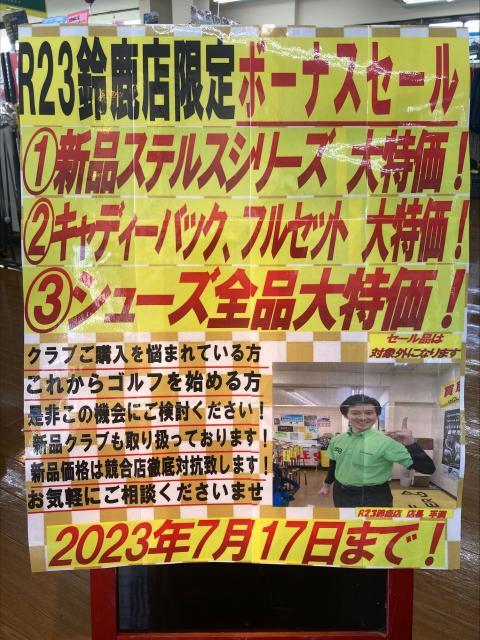 R23鈴鹿店限定ボーナスセール
①新品ステルスシリーズ 大特価！
②キャディーバック、フルセット 大特価！
③シューズ全品大特価！
セール品は
対象外になります
クラブご購入を悩まれている方
これからゴルフを始める方
是非この機会にご検討ください！
新品クラブも取り扱っております！
新品価格は競合店徹底対抗致します！
お気軽にご相談くださいませ
R23鈴鹿店 店長
2023年7月17日まで！